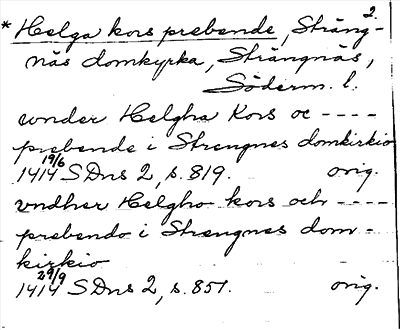 2.
* Helga kors prebende, Sträng-
näs domkyrka, Strängnäs,
Söderm. l.
wnder Helgha Kors oc ----
prebende i Strengnes domkirkio
1414 19/6 SDns 2, s. 819. orig.
vndher Helgho kors och ----
prebendo i Strengnes dom-
kirkio
1414 29/9 SDns 2, s. 851. orig.